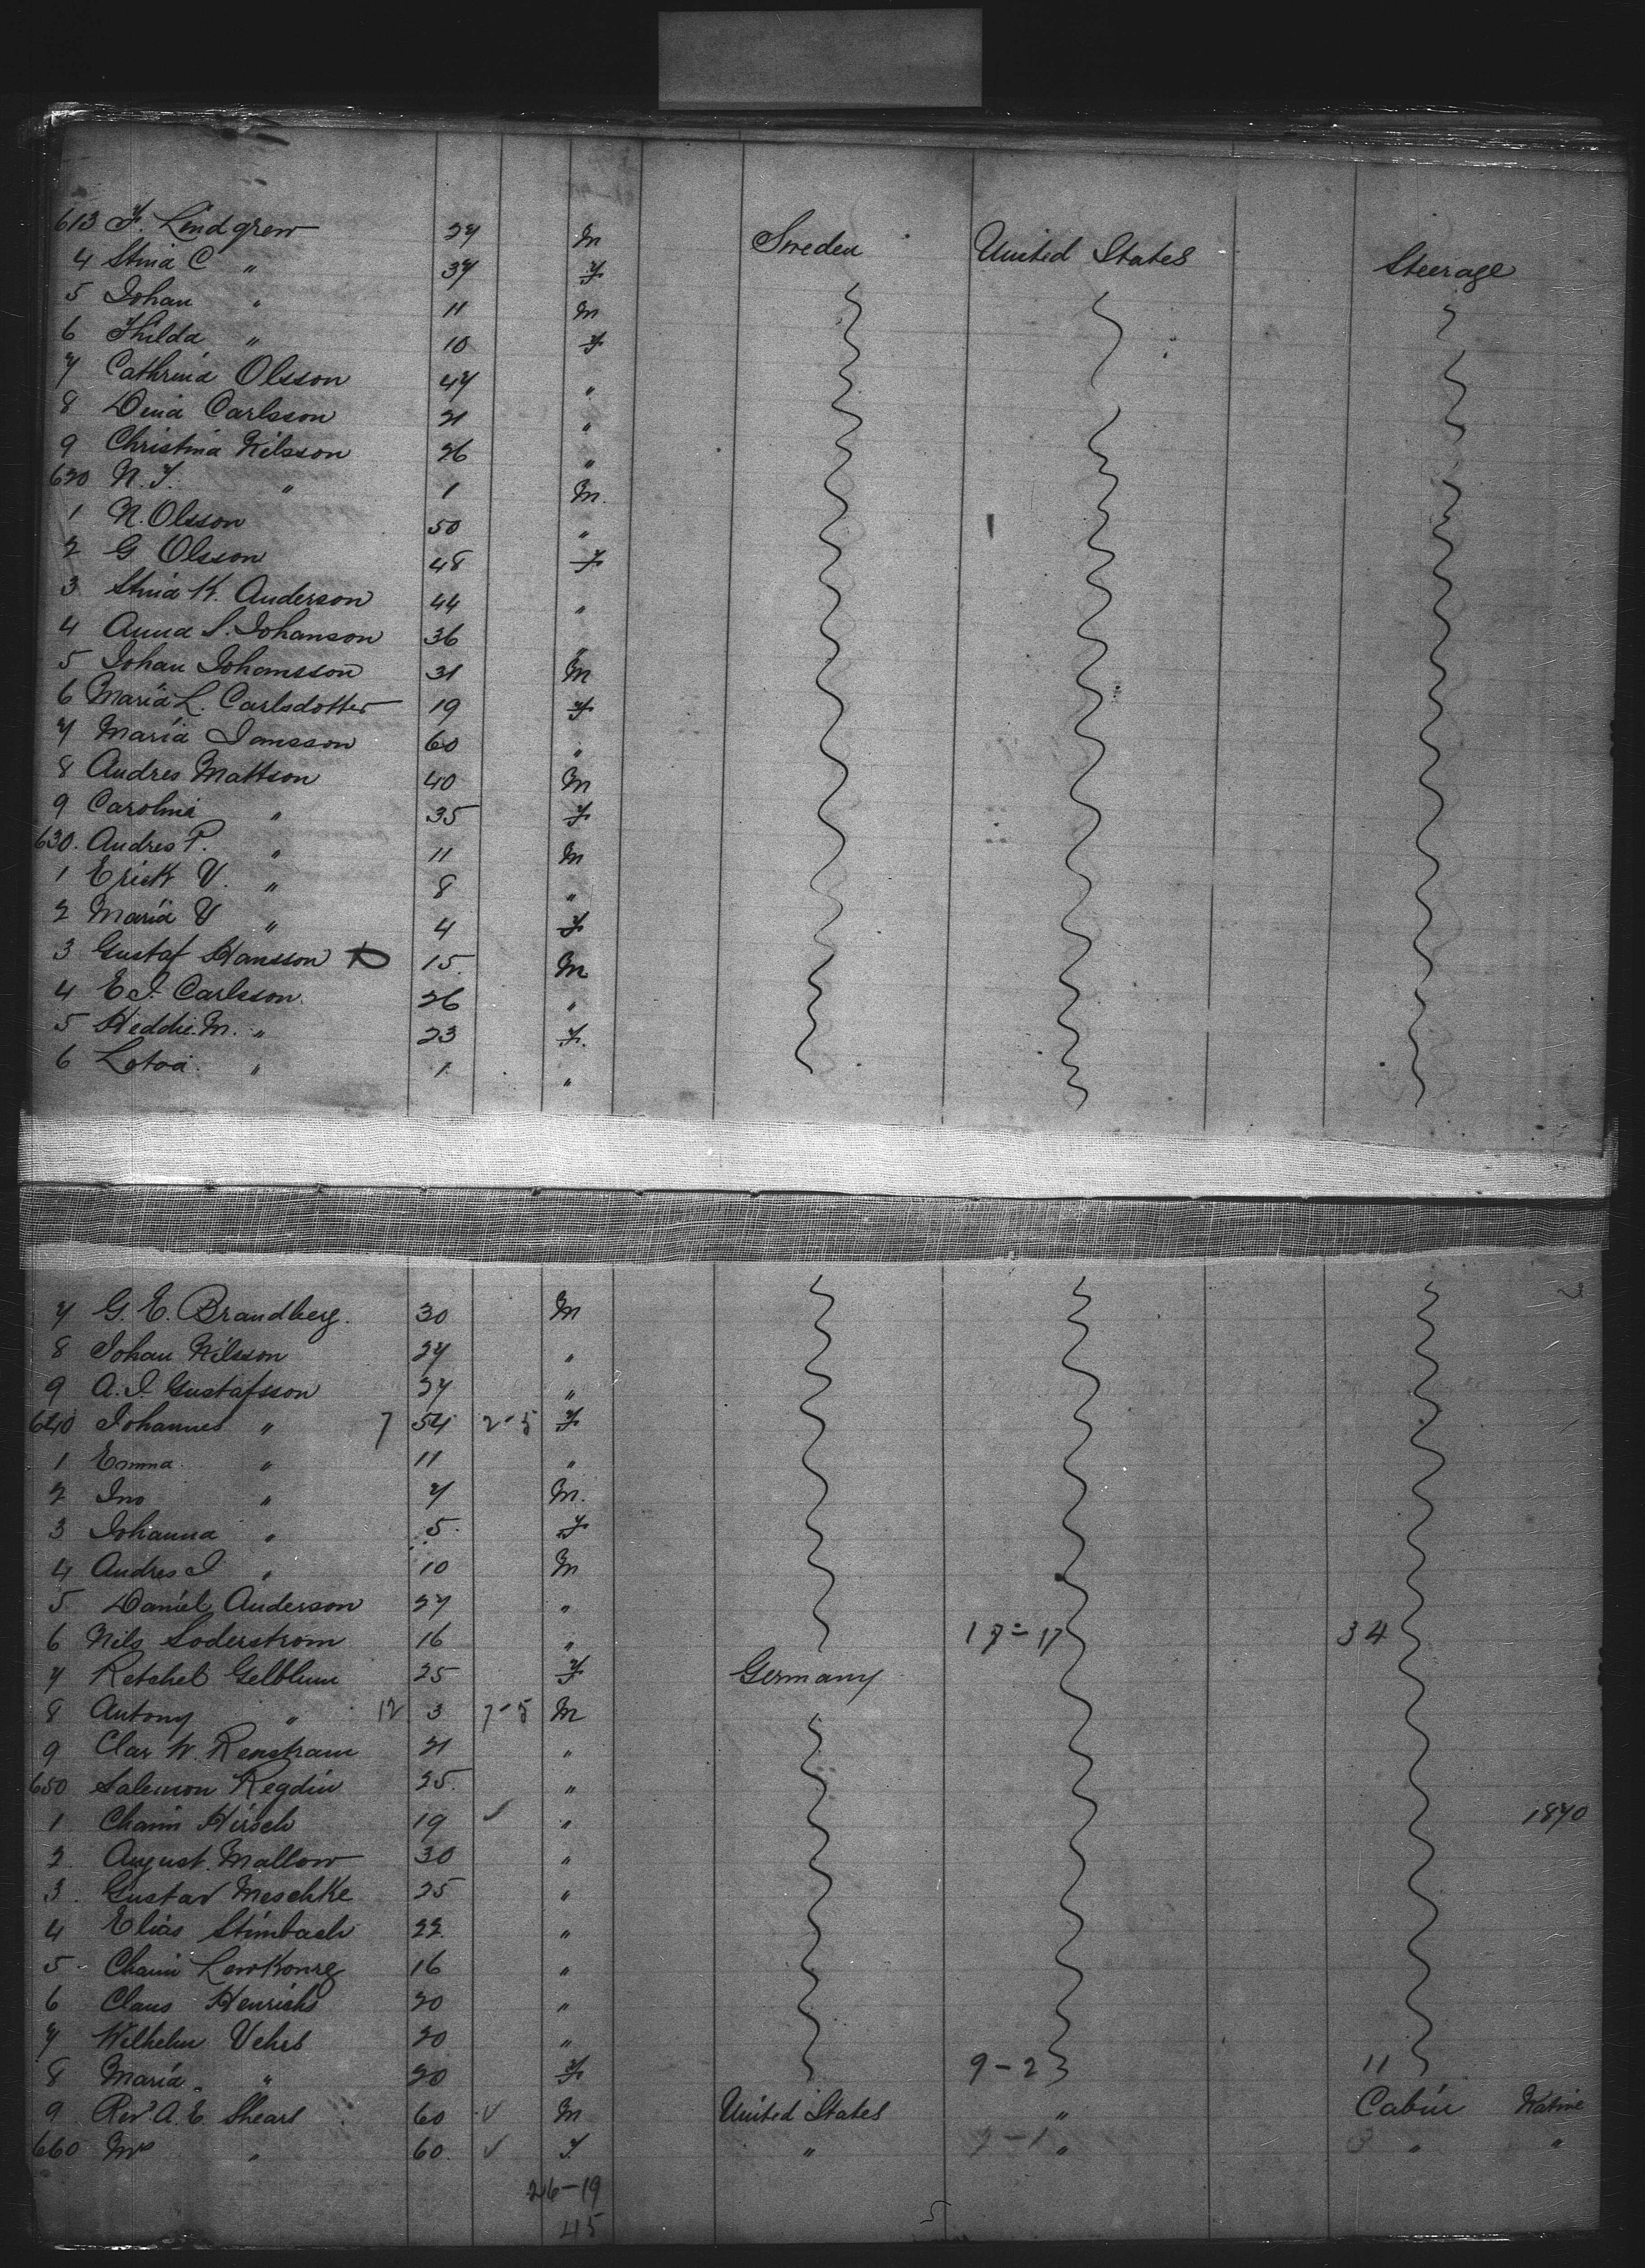 613 F. Lindgren 27 M Sweden United States Steerage
4 Stina C " 37 F
5 Johan " 11 M
6 Thilda " 10 F
7 Cathrina Olsson 47 "
8 Dina Carlsson 21 "
9 Christina Nilsson 26 "
620 N. F. " 1 M.
1 N. Olsson 50 "
2 G Olsson 48 F
3 Stina K. Anderson 44 "
4 Anna S. Johanson 36 "
5 Johan Johansson 31 M
6 Maria L. Carlsdotter 19 F
7 Maria Jansson 60 "
8 Andres Mattson 40 M
9 Carolina " 35 F
630. Andres P. " 11 M
1 Erick V. " 8 "
2 Maria V " 4 F
3 Gustaf Hansson 15. M
4 E J. Carlsson. 26 "
5 Heddie. M. " 23 F.
6 Lotoa. " 1 "
7 G. E. Brandberg. 30 M
8 Johan Nilsson 27 "
9 A. J. Gustafsson 27 "
640 Johannes " 7 54 2-5 F
1 Emma. " 11 "
2 Jno " 7 M.
3 Johanna " 5. F
4 Andres J " 10 M
5 Daniel Anderson 27 "
6 Nils Soderstrom 16 " 17=17 34
7 Retchel Gelblum 25 F Germany
8 Antony " 12 3 7-5 M
9 Clar W. Renstram 21 "
650 Salemon Regdin 25. "
1 Chaim Hirsch 19 ✓ " 1870
2. August. Mallow 30 "
3. Gustav Meschke 25 "
4 Elias Stimbach 22. "
5. Chaim Lewkonig 16 "
6 Claus Henrichs 20 "
7 Wilhelm Vehrs 20 "
8 Maria. " 20 F 9-2 11
9 Revd A. E. Shears 60 ✓ M United States " Cabin Native
660 Mrs " 60. ✓ F. " " " "
26-19
45